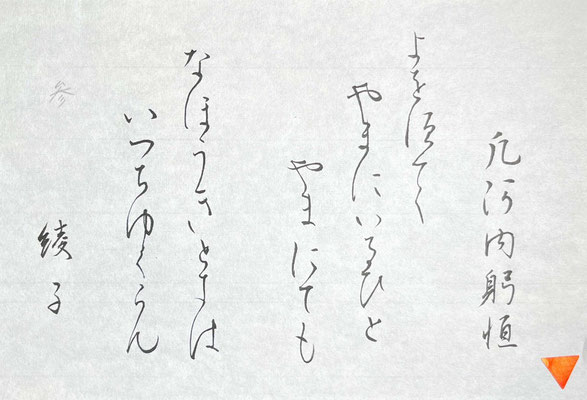 凡河内躬恒
よを須てゝ
やまにいるひと
やまにても
なほうきときは
いづちゆくらん
綾子
参